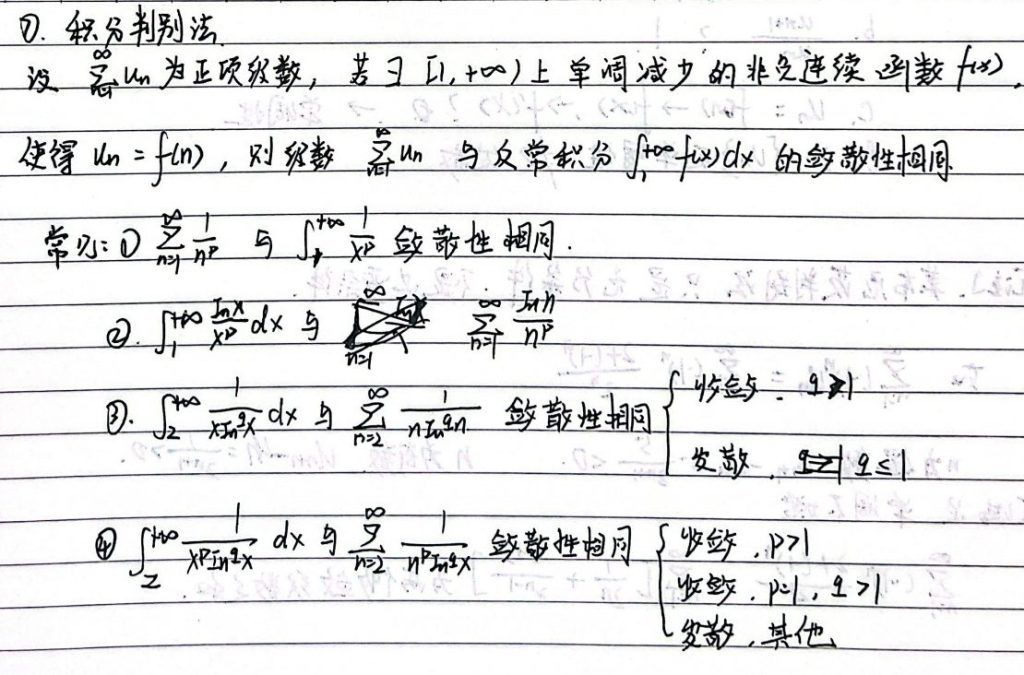 ⑦. 积分判别法
设 $\sum_{n=1}^{\infty} u_n$ 为正项级数，若∃ [1,+∞)上单调减少的非负连续函数f(x),
使得 $u_n = f(n)$，则级数 $\sum_{n=1}^{\infty} u_n$ 与反常积分 $\int_1^{+\infty} f(x)dx$ 的敛散性相同.
常见: ① $\sum_{n=1}^{\infty} \frac{1}{n^p}$ 与 $\int_1^{+\infty} \frac{1}{x^p}$ 敛散性相同.
②. $\int_1^{+\infty} \frac{\ln x}{x^p} dx$ 与 $\sum_{n=1}^{\infty} \frac{\ln n}{n^p}$
③. $\int_2^{+\infty} \frac{1}{x \ln^q x} dx$ 与 $\sum_{n=2}^{\infty} \frac{1}{n \ln^q n}$ 敛散性相同 { 收敛. q>1
发散. q≤1
④ $\int_2^{+\infty} \frac{1}{x^p \ln^q x} dx$ 与 $\sum_{n=2}^{\infty} \frac{1}{n^p \ln^q x}$ 敛散性相同 { 收敛. p>1
收敛. p=1, q>1
发散. 其他